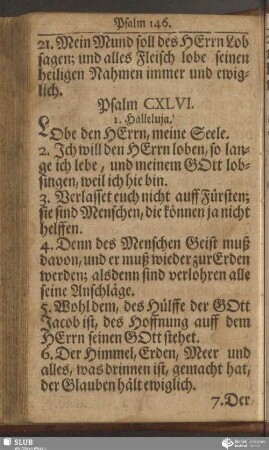 Psalm 146.
21. Mein Mund soll des HErrn Lob
sagen; und alles Fleisch lobe seinen
heiligen Nahmen immer und ewig-
lich.
Psalm CXLVI.
1. Halleluja!
LObe den HErrn, meine Seele.
2. Ich will den HErrn loben, so lan-
ge ich lebe, und meinem GOtt lob-
singen, weil ich hie bin.
3. Verlasset euch nicht auff Fürsten;
sie sind Menschen, die können ja nicht
helffen.
4. Denn des Menschen Geist muß
davon, und er muß wieder zur Erden
werden; alsdenn sind verlohren alle
seine Anschläge.
5. Wohl dem, des Hülffe der GOtt
Jacob ist, des Hoffnung auff dem
HErrn seinen GOtt stehet.
6. Der Himmel, Erden, Meer und
alles, was drinnen ist, gemacht hat,
der Glauben hält ewiglich.
7. Der
SLUB